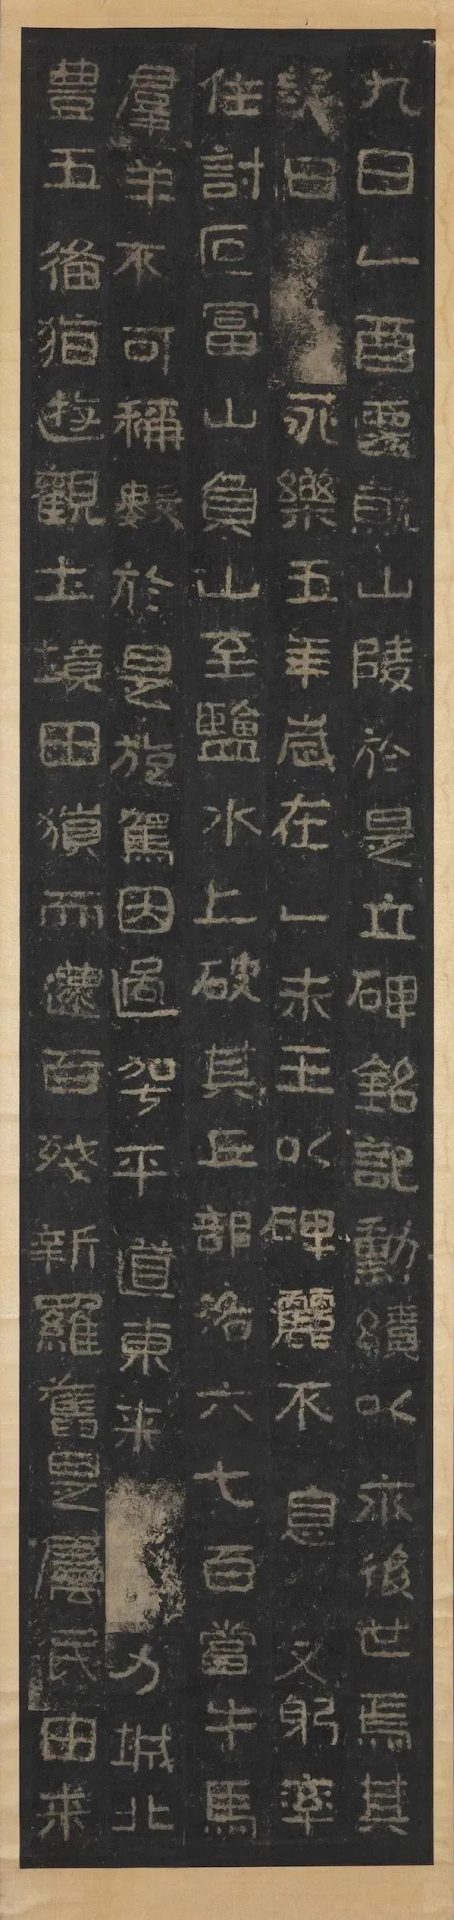 九日乙酉遷就山陵於是立碑銘記勳績以永後世焉其
詞曰永樂五年歲在乙未王以碑麗不息又躬率
住討叵富山負山至鹽水上破其丘部洛六七百當牛馬
羣羊不可稱數於是旋駕因過平道東来力城北
豊五俻猶遊觀土境田獵而還百残新羅舊是属民由来